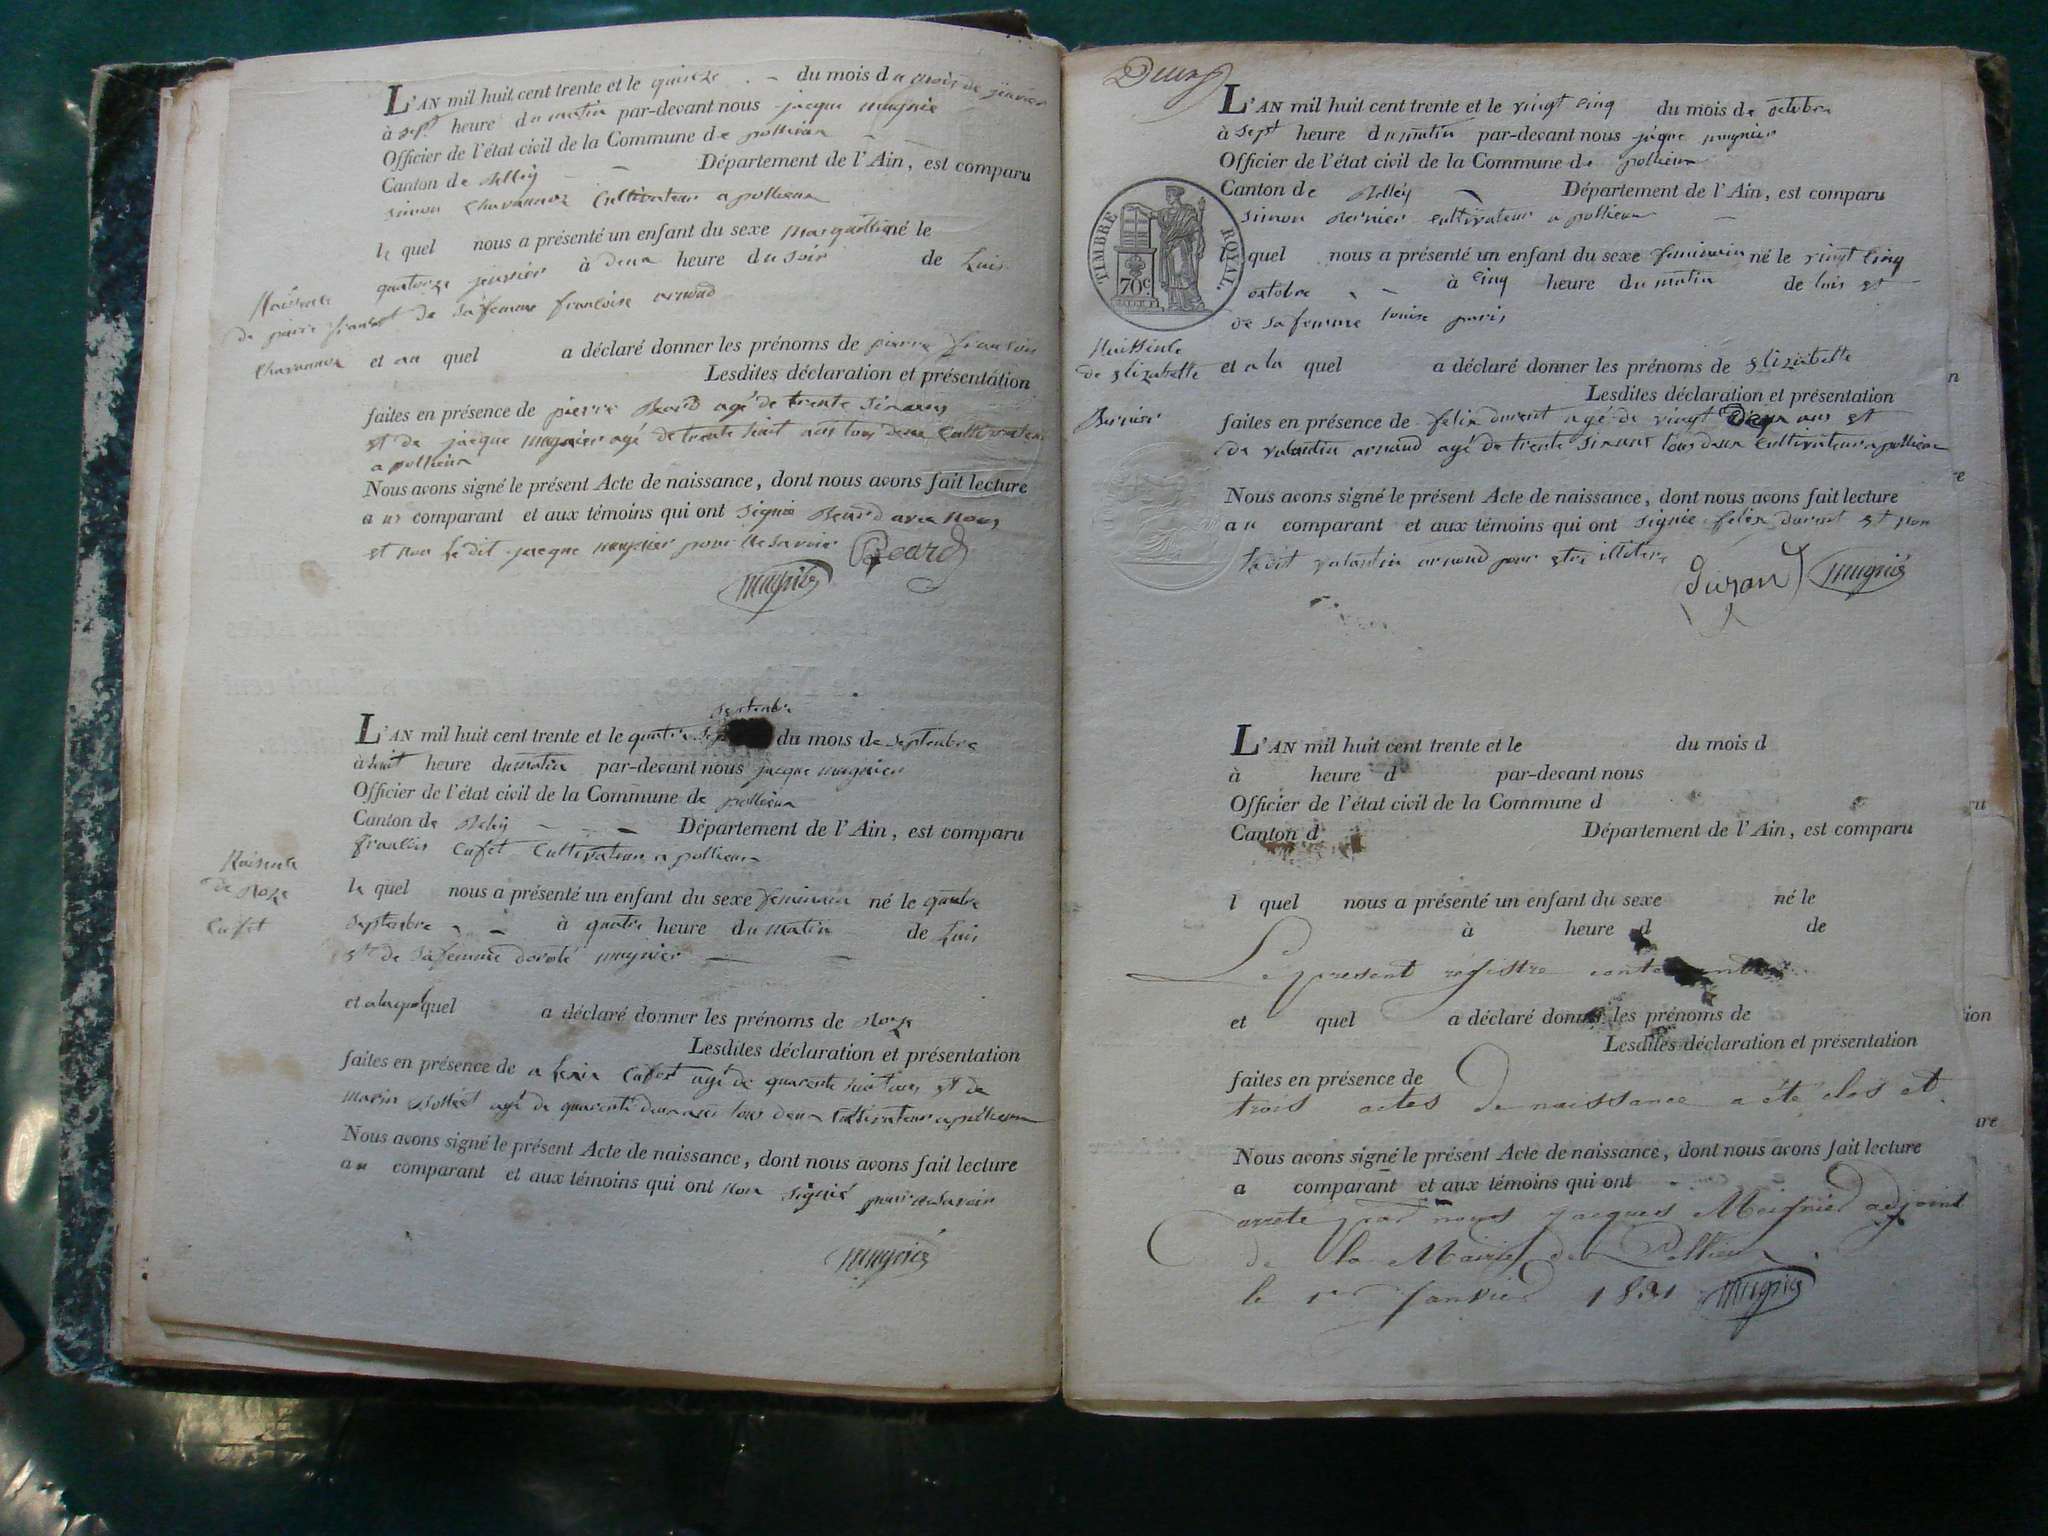 L'AN mil huit cent trente et le quinze du mois du mois de janvier
à sept heure du matin par-devant nous jacque mugnier
Officier de l'état civil de la Commune de pollieu
Canton de Belley Département de l'Ain, est comparu
simon Chavannoz Cultivateur a pollieu
le quel nous a présenté un enfant du sexe né le
quatorze janvier à deux heure du soir de Luis
et de sa femme francoise arnaud
Naissance
de pierre
Chavannoz
et au quel a déclaré donner les prénoms de pierre
Lesdites déclaration et présentation
faites en présence de pierre agé de trente
et de jacque mugnier agé de trente huit ans tous deux Cultivateur
a pollieu
Nous avons signé le présent Acte de naissance, dont nous avons fait lecture
au comparant et aux témoins qui ont signé avec nous
et non le dit jacque mugnier pour ne savoir
mugnier
septembre
L'AN mil huit cent trente et le quatre du mois de septembre
à huit heure du matin par-devant nous jacque mugnier
Officier de l'état civil de la Commune de pollieu
Canton de Beley Département de l'Ain, est comparu
francois Cufet Cultivateur a pollieu
Naisence
de Roze
Cufet
le quel nous a présenté un enfant du sexe feminin né le quatre
septembre à quatre heure du matin de Luis
et de sa femme doroté mugnier
et a laquel quel a déclaré donner les prénoms de Roze
Lesdites déclaration et présentation
faites en présence de Cufet agé de quarente huit ans et de
agé de quarente deux ans tous deux Cultivateur a pollieu
Nous avons signé le présent Acte de naissance, dont nous avons fait lecture
au comparant et aux témoins qui ont non signié pour ne savoir
mugnier
L'AN mil huit cent trente et le vingt cinq du mois de octobre
à sept heure du matin par-devant nous jaque mugnier
Officier de l'état civil de la Commune de pollieu
Canton de Belley Département de l'Ain, est comparu
simon Bernier cultivateur a pollieu
TIMBRE ROYAL
70c
l quel nous a présenté un enfant du sexe feminin né le vingt cinq
octobre à cinq heure du matin de luis et
de sa femme louise paris
Naissence
de Elizabette
Bernier
et a la quel a déclaré donner les prénoms de Elizabette
Lesdites déclaration et présentation
faites en présence de felix agé de vingt ans et
de valantin arnaud agé de trente tous deux Cultivateur a pollieu
Nous avons signé le présent Acte de naissance, dont nous avons fait lecture
au comparant et aux témoins qui ont signié felix et non
ledit valantin arnaud pour etre
mugnier
L'AN mil huit cent trente et le du mois d
à heure d par-devant nous
Officier de l'état civil de la Commune d
Canton d Département de l'Ain, est comparu
l quel nous a présenté un enfant du sexe né le
à heure d de
Le present régistre
et quel a déclaré donner les prénoms de
Lesdites déclaration et présentation
faites en présence de
trois actes de naissance a été clos et
Nous avons signé le présent Acte de naissance, dont nous avons fait lecture
a comparant et aux témoins qui ont
arreté par nous Jacques Meifnier adjoint
de la Mairie de Pollieu
le 1er Janvier 1831 mugnier